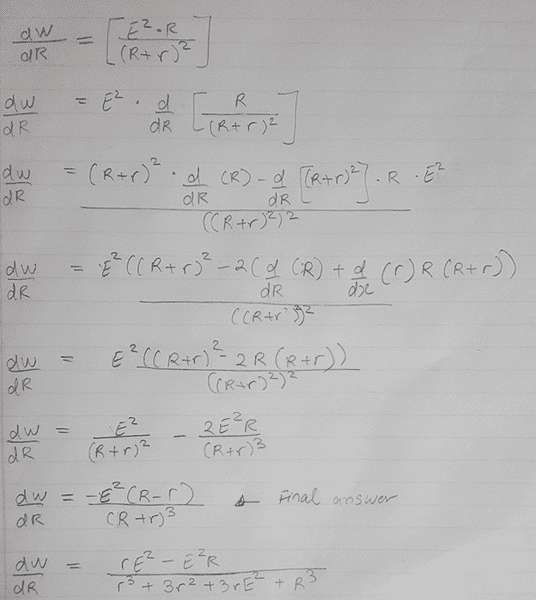 dw/dR = [E²·R/(R+r)²]
dw/dR = E² · d/dR [R/(R+r)²]
dw/dR = (R+r)² · d/dR (R) - d/dR [(R+r)²] · R · E² / ((R+r)²)²
dw/dR = E²((R+r)² - 2(d/dR (R) + d/dx (r) R (R+r)) / ((R+r)²)²
dw/dR = E²((R+r)² - 2R(R+r)) / ((R+r)²)²
dw/dR = E²/(R+r)² - 2E²R/(R+r)³
dw/dR = -E²(R-r)/(R+r)³ Final answer
dw/dR = rE² - E²R / r³ + 3r² + 3rE² + R³